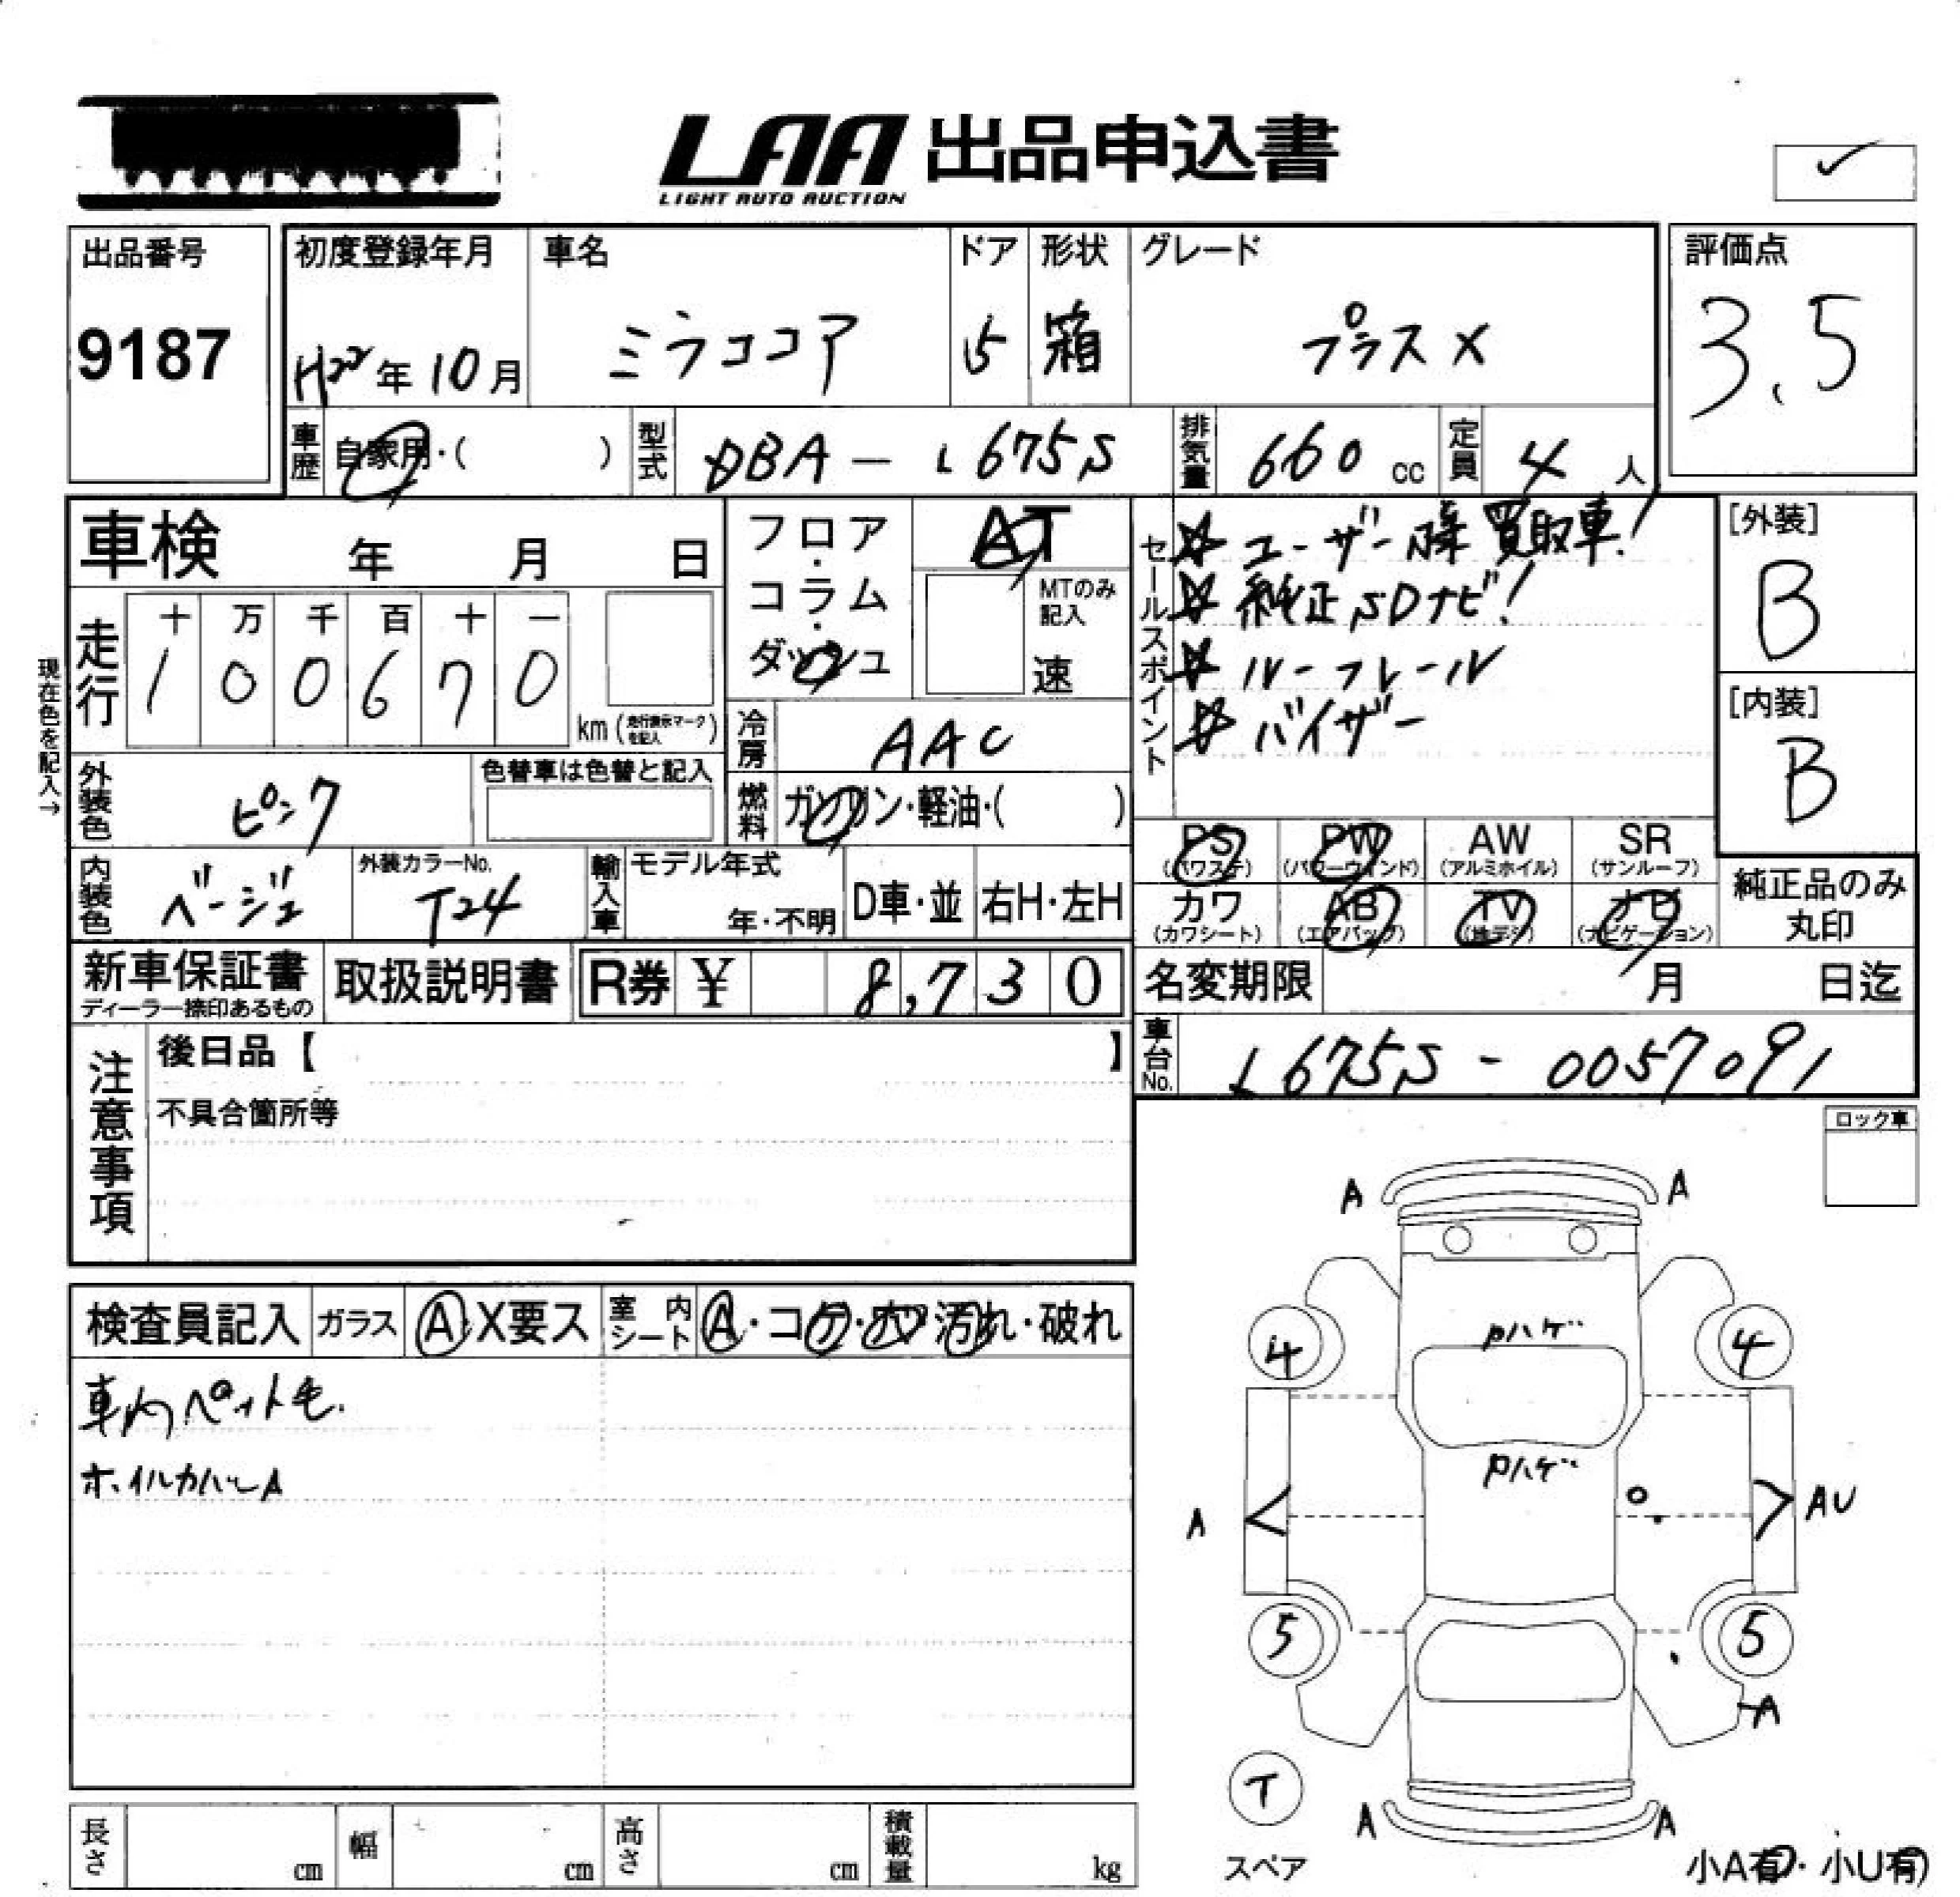 LAA 出品申込書
LIGHT AUTO AUCTION
✓
出品番号
9187
初度登録年月
H22年10月
車名
ミラココア
ドア
5
形状
箱
グレード
プラスX
評価点
3.5
車歴
自家用・( )
型式
DBA-L675S
排気量
660 cc
定員
4 人
車検 年 月 日
現在色を記入→
走行
十 万 千 百 十 一
1 0 0 6 7 0
km (走行表示マークを記入)
フロア・コラム・ダッシュ
AT
MTのみ記入
速
冷房
AAC
燃料
ガソリン・軽油・( )
セールスポイント
☆ ユーザー様買取車!
☆ 純正SDナビ!
☆ ルーフレール
☆ バイザー
[外装]
B
[内装]
B
外装色
ピンク
色替車は色替と記入
内装色
ベージュ
外装カラーNo.
T24
輸入車
モデル年式
年・不明
D車・並
右H・左H
PS
(パワステ)
PW
(パワーウインド)
AW
(アルミホイル)
SR
(サンルーフ)
カワ
(カワシート)
AB
(エアバッグ)
TV
(地デジ)
ナビ
(ナビゲーション)
純正品のみ
丸印
新車保証書
ディーラー捺印あるもの
取扱説明書
R券 ¥ 8,730
名変期限 月 日迄
車台No.
L675S-0057091
注意事項
後日品【 】
不具合箇所等
ロック車
検査員記入
ガラス
A・X要ス
室内シート
A・コゲ・穴・汚れ・破れ
車内ペット毛.
ホイルカバーA
A A
4 4
Pハゲ
Pハゲ
A AU
5 5
A
T
スペア
A A
小A有・小U有
長さ cm
幅 cm
高さ cm
積載量 kg